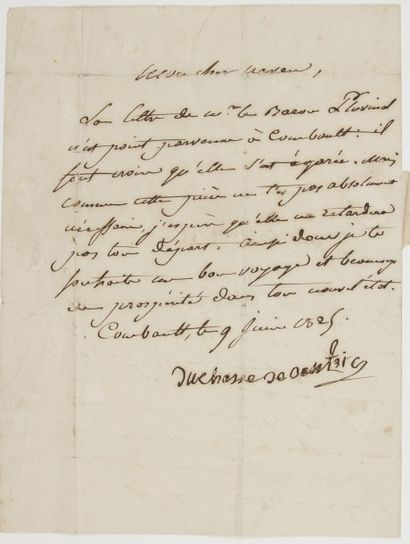 mon cher neveu,
La lettre de Mr. le Baron
n'est point parvenue à Combault: il
faut croire qu'elle s'est égarée. Mais
comme cette pièce ne t'est pas absolument
nécessaire, j'espère qu'elle ne retardera
pas ton Départ. ainsi donc je te
souhaite un bon voyage et beaucoup
de prospérité dans ton nouvel état.
Combault, le 9 Juin 1825.
Duchesse de Dantzig